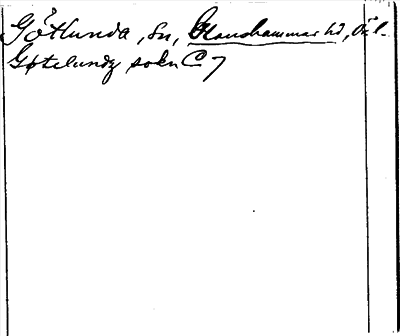 Götlunda, sn, Glanshammar hd, Ö l.
Gøtelundz sokn C 7